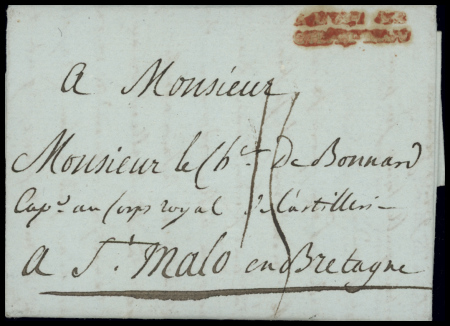 a Monsieur
Monsieur le Ch.er De Bonnard
Cap.e au Corps royal De L'artillerie
a St. Malo en Bretagne
15